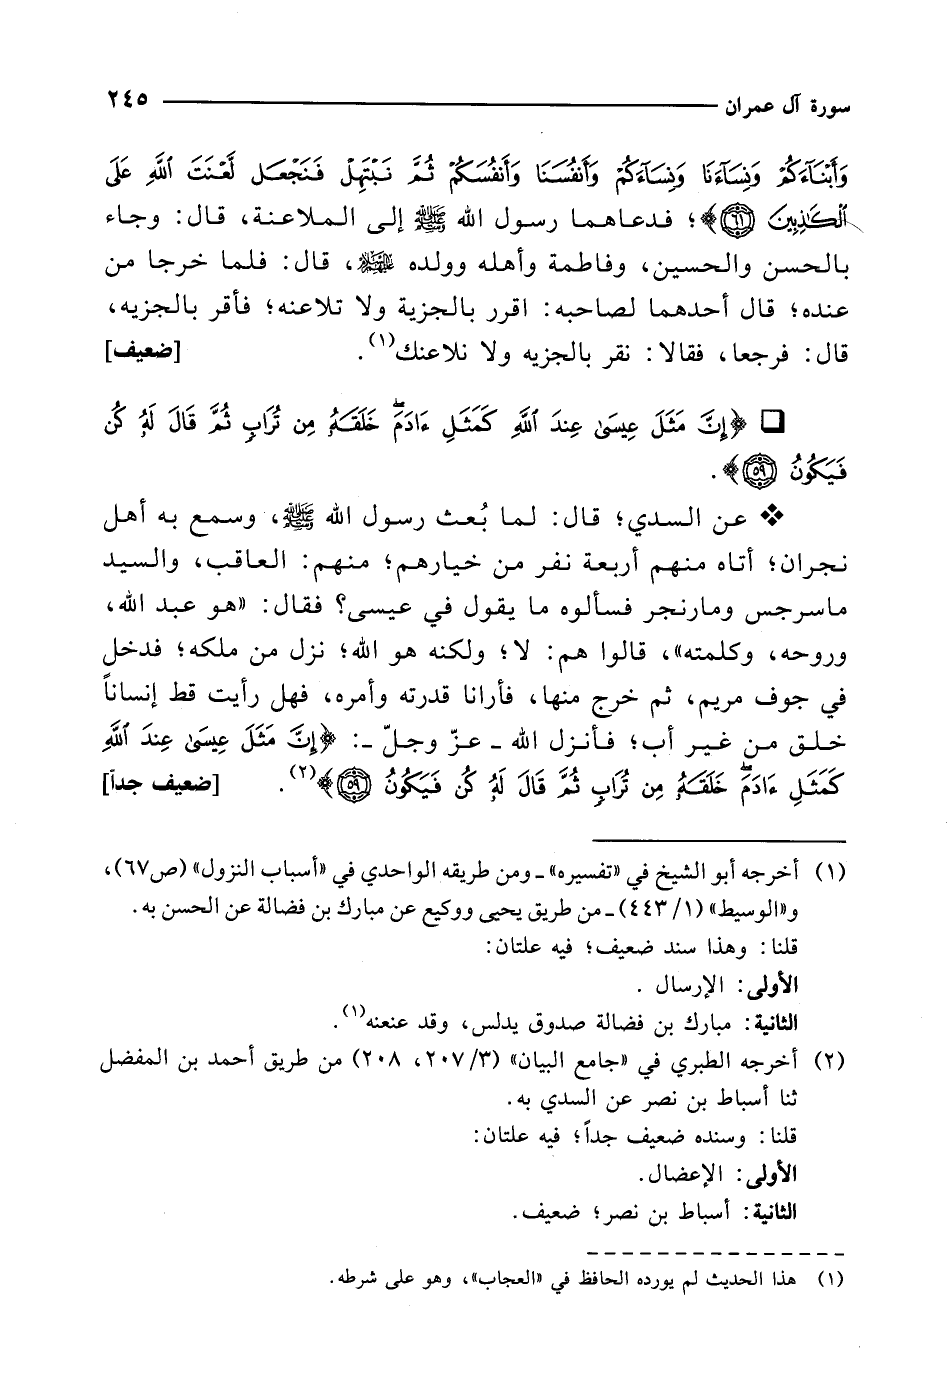 سورة آل عمران ٢٤٥
وَأَبْنَآءَكُمْ وَنِسَآءَنَا وَنِسَآءَكُمْ وَأَنفُسَنَا وَأَنفُسَكُمْ ثُمَّ نَبْتَهِلْ فَنَجْعَل لَّعْنَتَ ٱللَّهِ عَلَى
ٱلْكَٰذِبِينَ ۝٦١﴾؛ فدعاهما رسول الله ﷺ إلى الملاعنة، قال: وجاء
بالحسن والحسين، وفاطمة وأهله وولده ﷺ، قال: فلما خرجا من
عنده؛ قال أحدهما لصاحبه: اقرر بالجزية ولا تلاعنه؛ فأقر بالجزيه،
قال: فرجعا، فقالا: نقر بالجزيه ولا نلاعنك(١). [ضعيف]
❑ ﴿إِنَّ مَثَلَ عِيسَىٰ عِندَ ٱللَّهِ كَمَثَلِ ءَادَمَۖ خَلَقَهُۥ مِن تُرَابٍ ثُمَّ قَالَ لَهُۥ كُن
فَيَكُونُ ۝٥٩﴾.
❖ عن السدي؛ قال: لما بُعث رسول الله ﷺ، وسمع به أهل
نجران؛ أتاه منهم أربعة نفر من خيارهم؛ منهم: العاقب، والسيد
ماسرجس ومارنجر فسألوه ما يقول في عيسى؟ فقال: «هو عبد الله،
وروحه، وكلمته»، قالوا هم: لا؛ ولكنه هو الله؛ نزل من ملكه؛ فدخل
في جوف مريم، ثم خرج منها، فأرانا قدرته وأمره، فهل رأيت قط إنساناً
خلق من غير أب؛ فأنزل الله ـ عزّ وجلّ ـ: ﴿إِنَّ مَثَلَ عِيسَىٰ عِندَ ٱللَّهِ
كَمَثَلِ ءَادَمَۖ خَلَقَهُۥ مِن تُرَابٍ ثُمَّ قَالَ لَهُۥ كُن فَيَكُونُ ۝٥٩﴾(٢). [ضعيف جداً]
(١) أخرجه أبو الشيخ في «تفسيره» ـ ومن طريقه الواحدي في «أسباب النزول» (ص٦٧)،
و«الوسيط» (١/ ٤٤٣) ـ من طريق يحيى ووكيع عن مبارك بن فضالة عن الحسن به.
قلنا: وهذا سند ضعيف؛ فيه علتان:
الأولى: الإرسال .
الثانية: مبارك بن فضالة صدوق يدلس، وقد عنعنه(١).
(٢) أخرجه الطبري في «جامع البيان» (٣/ ٢٠٧، ٢٠٨) من طريق أحمد بن المفضل
ثنا أسباط بن نصر عن السدي به.
قلنا: وسنده ضعيف جداً؛ فيه علتان:
الأولى: الإعضال.
الثانية: أسباط بن نصر؛ ضعيف.
(١) هذا الحديث لم يورده الحافظ في «العجاب»، وهو على شرطه.